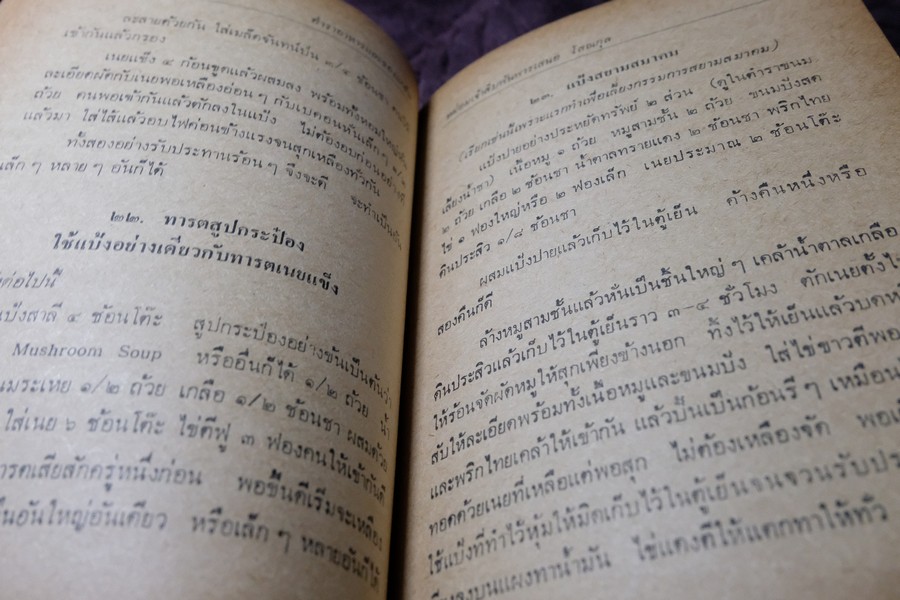 ตำราอาหาร
ละลายด้วยกัน ใส่เมล็ดจันทน์ป่น ๓/๔ ช้อนชา คนให้
เข้ากันแล้วกรอง
เนยแข็ง ๔ ก้อนขูดแล้วผสมลง พร้อมทั้งหอมใหญ่
ละเอียดผัดกับเนยพอเหลืองอ่อนๆ กับเบคอนหั่นเล็กๆ ๑/๒
ถ้วย คนพอเข้ากันแล้วตักลงในแป้ง ไม่ต้องอบก่อนอย่างที่
แล้วมา ใส่ไส้แล้วอบไฟค่อนข้างแรงจนสุกเหลืองทั่วกัน
ทั้งสองอย่างรับประทานร้อนๆ จึงจะดี จะทำเป็นอัน
เล็กๆ หลายๆ อันก็ได้
๒๒. ทารตสูปกระป๋อง
ใช้แป้งอย่างเดียวกับทารตเนยแข็ง
ต่อไปนี้
แป้งสาลี ๔ ช้อนโต๊ะ สูปกระป๋องอย่างข้นเป็นต้นว่า
Mushroom Soup หรืออื่นก็ได้ ๑/๒ ถ้วย น้ำ
นมระเหย ๑/๒ ถ้วย เกลือ ๑/๒ ช้อนชา ผสมด้วย
ใส่เนย ๖ ช้อนโต๊ะ ไข่ตีฟู ๓ ฟองคนให้เข้ากันดี
ทารตเสียสักครู่หนึ่งก่อน พอขึ้นดีเริ่มจะเหลือง
เป็นอันใหญ่อันเดียว หรือเล็กๆ หลายอันก็ได้
๒๓. แป้งสยามสมาคม
(เรียกเช่นนี้เพราะแรกทำเพื่อเลี้ยงกรรมการสยามสมาคม)
แป้งปายอย่างประหยัดทรัพย์ ๒ ส่วน (ดูในตำราขนม
เลี้ยงน้ำชา) เนื้อหมู ๑ ถ้วย หมูสามชั้น ๒ ถ้วย ขนมปังสด
๒ ถ้วย เกลือ ๒ ช้อนชา น้ำตาลทรายแดง ๒ ช้อนชา พริกไทย
ไข่ ๑ ฟองใหญ่หรือ ๒ ฟองเล็ก เนยประมาณ ๒ ช้อนโต๊ะ
ดินประสิว ๑/๔ ช้อนชา
ผสมแป้งปายแล้วเก็บไว้ในตู้เย็น ค้างคืนหนึ่งหรือ
สองคืนก็ดี
ล้างหมูสามชั้นแล้วหั่นเป็นชิ้นใหญ่ๆ เคล้าน้ำตาลเกลือ
ดินประสิวแล้วเก็บไว้ในตู้เย็นราว ๓-๔ ชั่วโมง ตักเนยตั้งไฟ
ให้ร้อนจัดผัดหมูให้สุกเพียงข้างนอก ทิ้งไว้ให้เย็นแล้วบด
สับให้ละเอียดพร้อมทั้งเนื้อหมูและขนมปัง ใส่ไข่ขาวตีพอ
และพริกไทยเคล้าให้เข้ากัน แล้วปั้นเป็นก้อนรีๆ เหมือน
ทอดด้วยเนยที่เหลือแต่พอสุก ไม่ต้องเหลืองจัด พอ
ใช้แป้งที่ทำไว้หุ้มให้มิดเก็บไว้ในตู้เย็นจนจวนรับประ
บนแผงทาน้ำมัน ไข่แดงตีให้แตกทาให้ทั่ว